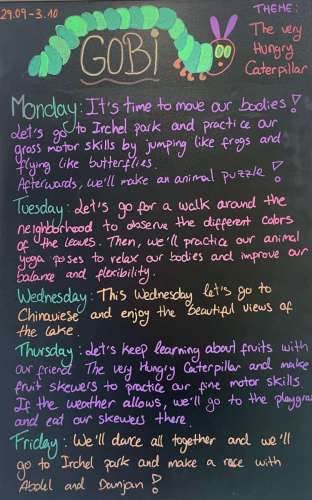 29.09-3.10
GOBi
THEME:
The very
Hungry
Caterpillar
Monday: It's time to move our bodies!
Let's go to Irchel park and practice our
gross motor skills by jumping like frogs and
flying like butterflies.
Afterwards, we'll make an animal puzzle!
Tuesday: Let's go for a walk around the
neighborhood to observe the different colors
of the leaves. Then, we'll practice our animal
yoga poses to relax our bodies and improve our
balance and flexibility.
Wednesday: This Wednesday let's go to
Chinawiese and enjoy the beautiful views of
the lake.
Thursday: Let's keep learning about fruits with
our friend The very Hungry Caterpillar and make
fruit skewers to practice our fine motor skills
If the weather allows, we'll go to the playgrou
and eat our skewers there.
Friday: We'll dance all together and we'll
go to Irchel park and make a race with
Abdel and